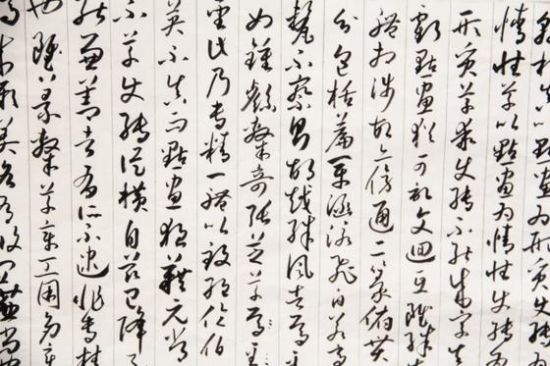 真以點畫為形質使轉為
情性草以點畫為情性使轉為
形質草乖使轉不能成字真
虧點畫猶可記文迴互雖殊
體相涉故亦傍通二篆俯貫
分包括篇章涵泳飛白若毫
氂不察則胡越殊風者焉至
如鍾繇隸奇張芝草聖
此乃專精一體以致絕倫伯
英不真而點畫狼藉元常
不草使轉縱橫自茲已降不
能兼善者有所不逮非專精
也雖篆隸草章工用多
成厥美各有攸宜篆尚